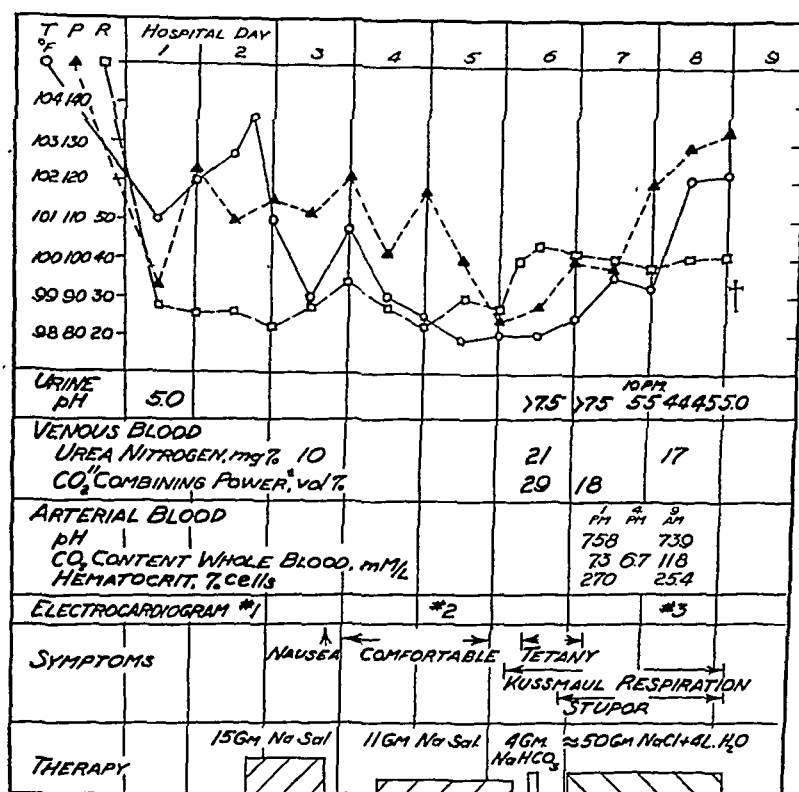 T P R HOSPITAL DAY
°F 1 2 3 4 5 6 7 8 9
104 140
103 130
102 120
101 110 50
100 100 40
99 90 30
98 80 20
URINE 10 P.M.
pH 5.0 >7.5 >7.5 5.5 4.4 4.5 5.0
VENOUS BLOOD
UREA NITROGEN, mg % 10 21 17
"CO₂ COMBINING POWER," vol % 29 18
ARTERIAL BLOOD 1 PM 4 PM 9 AM
pH 7.58 7.39
CO₂ CONTENT WHOLE BLOOD, mM/L 7.3 6.7 11.8
HEMATOCRIT, % cells 27.0 25.4
ELECTROCARDIOGRAM #1 #2 #3
SYMPTOMS NAUSEA COMFORTABLE TETANY
KUSSMAUL RESPIRATION
STUPOR
15 Gm Na Sal 11 Gm Na Sal. 4 GM. NaHCO₃ ≈50 Gm NaCl + 4 L. H₂O
THERAPY